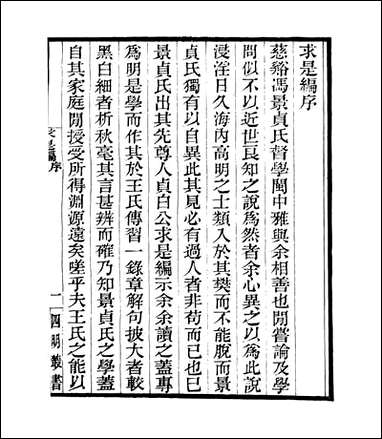 求是編序
慈谿馮景貞氏督學閩中雅與余相善也閒嘗論及學
問似不以近世良知之說爲然者余心異之以爲此說
浸淫日久海內高明之士類入於其樊而不能脫而景
貞氏獨有以自異此其見必有過人者非苟而已也已
景貞氏出其先尊人貞白公求是編示余余讀之蓋專
爲明是學而作其於王氏傳習一錄章解句披大者較
黑白細者析秋毫其言甚辨而確乃知景貞氏之學蓋
自其家庭閒授受所得淵源遠矣嗟乎夫王氏之能以
求是編序
一
四明叢書